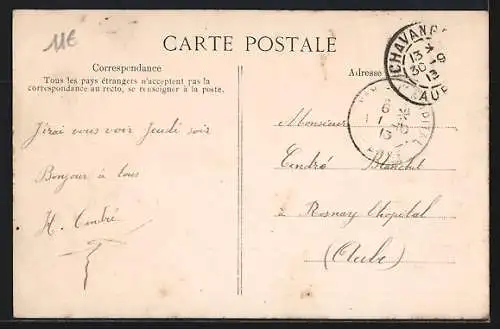 11€
CARTE POSTALE
Correspondance
Tous les pays étrangers n'acceptent pas la
correspondance au recto, se renseigner à la poste.
Adresse
CHAVANGES
13
30 -9
13
AUBE
6
1 - 10
13
J'irai vous voir Jeudi soir
Bonjour à tous
H. André
Monsieur
André Blanchet
à Rosnay l'hopital
(Aube)